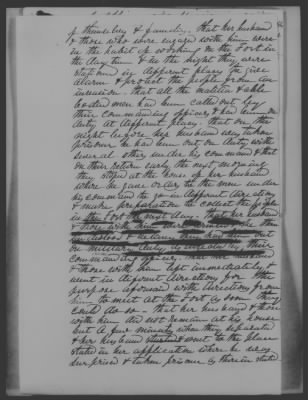 of himself & family. that her husband
& those who were engaged with him were
in the habit of working on the Fort in
the day time & in the night they were
stationed in different places to give
alarm & protect the people from an
invasion. that all the militia & able
bodied men had been called out by
their commanding officers & had been on
duty at different places. that on the
night before her husband was taken
prisoner he had been out on duty with
several others under his command & that
on their return early the next morning
they stopped at the house of her husband
where he gave orders to the men under
his command to go in different directions
& make preparation to collect the people
in the Fort the next day. that her husband
& those with him
on military duty by their
commanding officer, that her husband
& those with him left immediately &
went in different directions for the
purpose aforesaid with directions from
him to meet at the Fort as soon as they
could do so - that her husband & those
with him did not remain at his house
but a few minutes when they separated
& her husband went to the place
stated in her application where he was
surprised & taken prisoner as therein stated